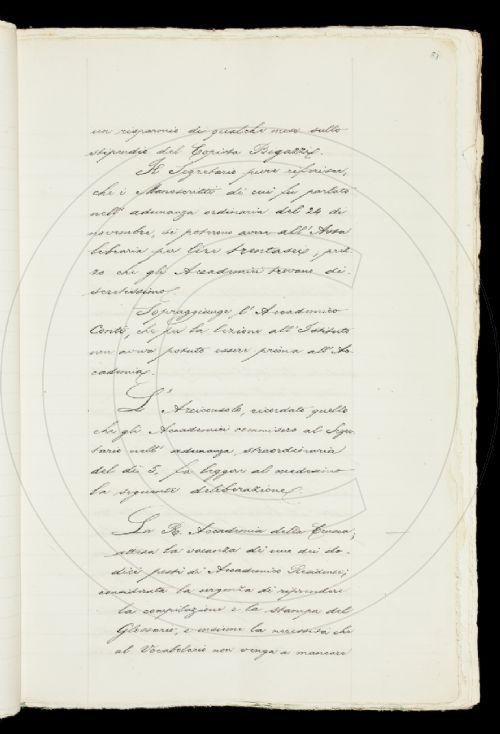 un risparmio di qualche mese sullo
stipendio del Copista Bigazzi.
Il Segretario pure riferisce,
che i Manoscritti di cui fu parlato
nell'adunanza ordinaria del 24 di
novembre, si potrono avere all'Asta
libraria per lire trentasei, prez-
zo che gli Accademici trovano di-
scretissimo.
Sopraggiunge l'Accademico
Conti, che per la lezione all'Istituto
non aveva potuto essere prima all'Ac-
cademia.
L'Arciconsolo, ricordato quello
che gli Accademici commisero al Segre-
tario nell'adunanza straordinaria
del dì 5, fa leggere al medesimo
la seguente deliberazione.
La R. Accademia della Crusca,
attesa la vacanza di uno dei do-
dici posti di Accademico Residente;
considerata la urgenza di riprendere
la compilazione e la stampa del
Glossario, e insieme la necessità che
al Vocabolario non venga a mancare